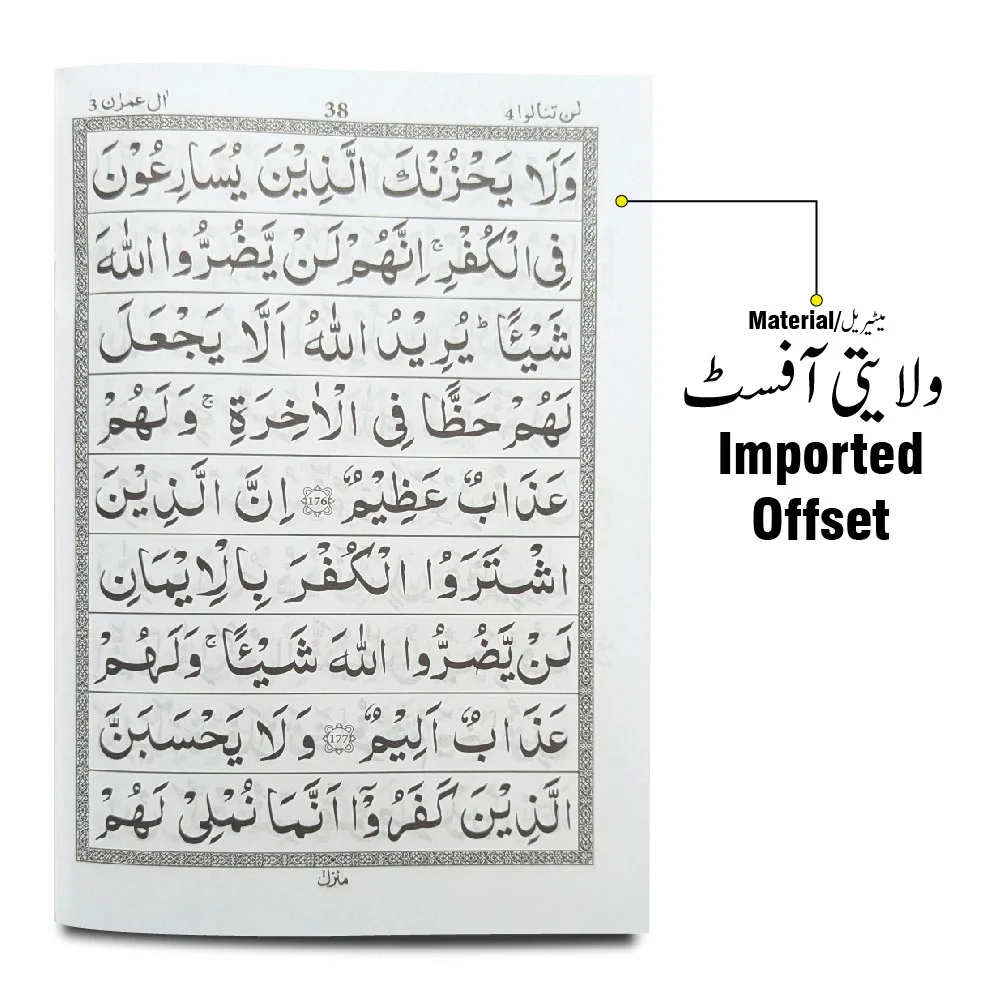 لن تنالوا 4 38 اٰل عمرٰن 3
وَلَا يَحْزُنْكَ الَّذِيْنَ يُسَارِعُوْنَ
فِى الْكُفْرِ ۚ اِنَّهُمْ لَنْ يَّضُرُّوا اللّٰهَ
شَيْـًٔا ؕ يُرِيْدُ اللّٰهُ اَلَّا يَجْعَلَ
لَهُمْ حَظًّا فِى الْاٰخِرَةِ ۚ وَلَهُمْ
عَذَابٌ عَظِيْمٌ ۝176 اِنَّ الَّذِيْنَ
اشْتَرَوُا الْكُفْرَ بِالْاِيْمَانِ
لَنْ يَّضُرُّوا اللّٰهَ شَيْـًٔا ۚ وَلَهُمْ
عَذَابٌ اَلِيْمٌ ۝177 وَلَا يَحْسَبَنَّ
الَّذِيْنَ كَفَرُوْۤا اَنَّمَا نُمْلِىْ لَهُمْ
منزل١
Material/میٹیریل
ولایتی آفسٹ
Imported
Offset